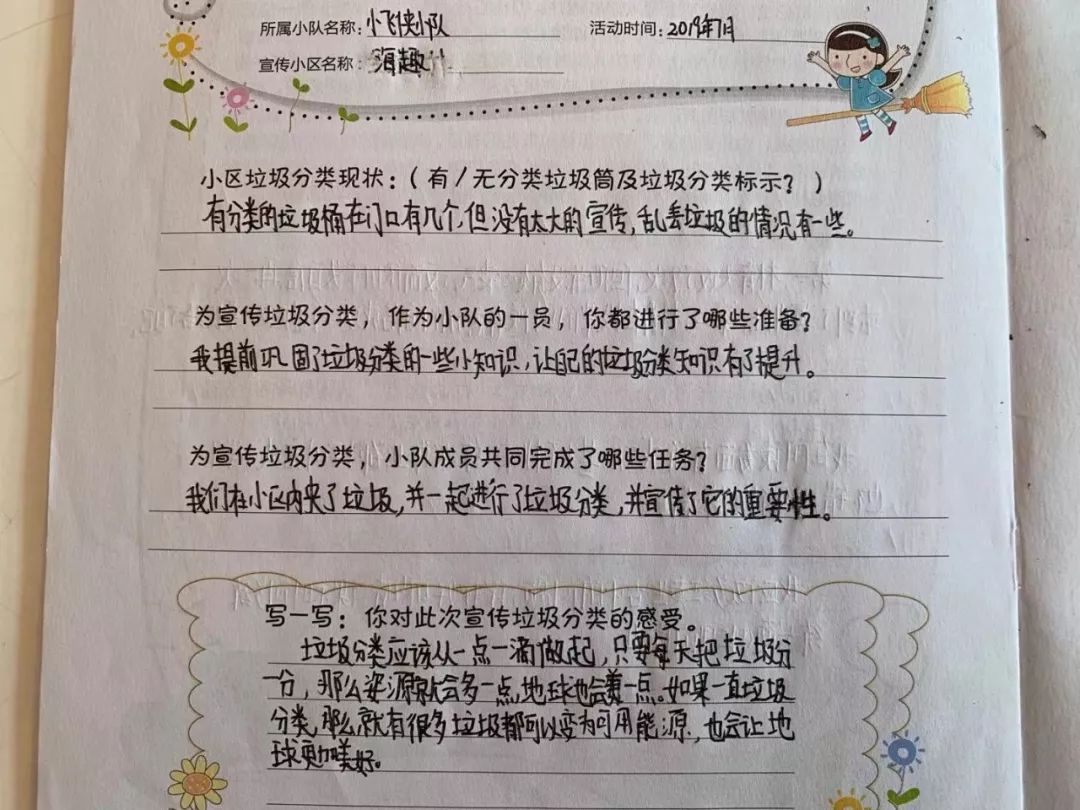 所属小队名称:小飞侠小队 活动时间:2019年7月
宣传小区名称:海趣
小区垃圾分类现状:(有/无分类垃圾筒及垃圾分类标示?)
有分类的垃圾桶在门口有几个,但没有太大的宣传,乱丢垃圾的情况有一些。
为宣传垃圾分类,作为小队的一员,你都进行了哪些准备?
我提前巩固了垃圾分类的一些小知识,让自己的垃圾分类知识有了提升。
为宣传垃圾分类,小队成员共同完成了哪些任务?
我们在小区内夹了垃圾,并一起进行了垃圾分类,并宣传了它的重要性。
写一写:你对此次宣传垃圾分类的感受。
垃圾分类应该从一点一滴做起,只要每天把垃圾分
一分,那么资源就会多一点,地球也会美一点。如果一直垃圾
分类,那么就有很多垃圾都可以变为可用能源,也会让地
球更加美好。